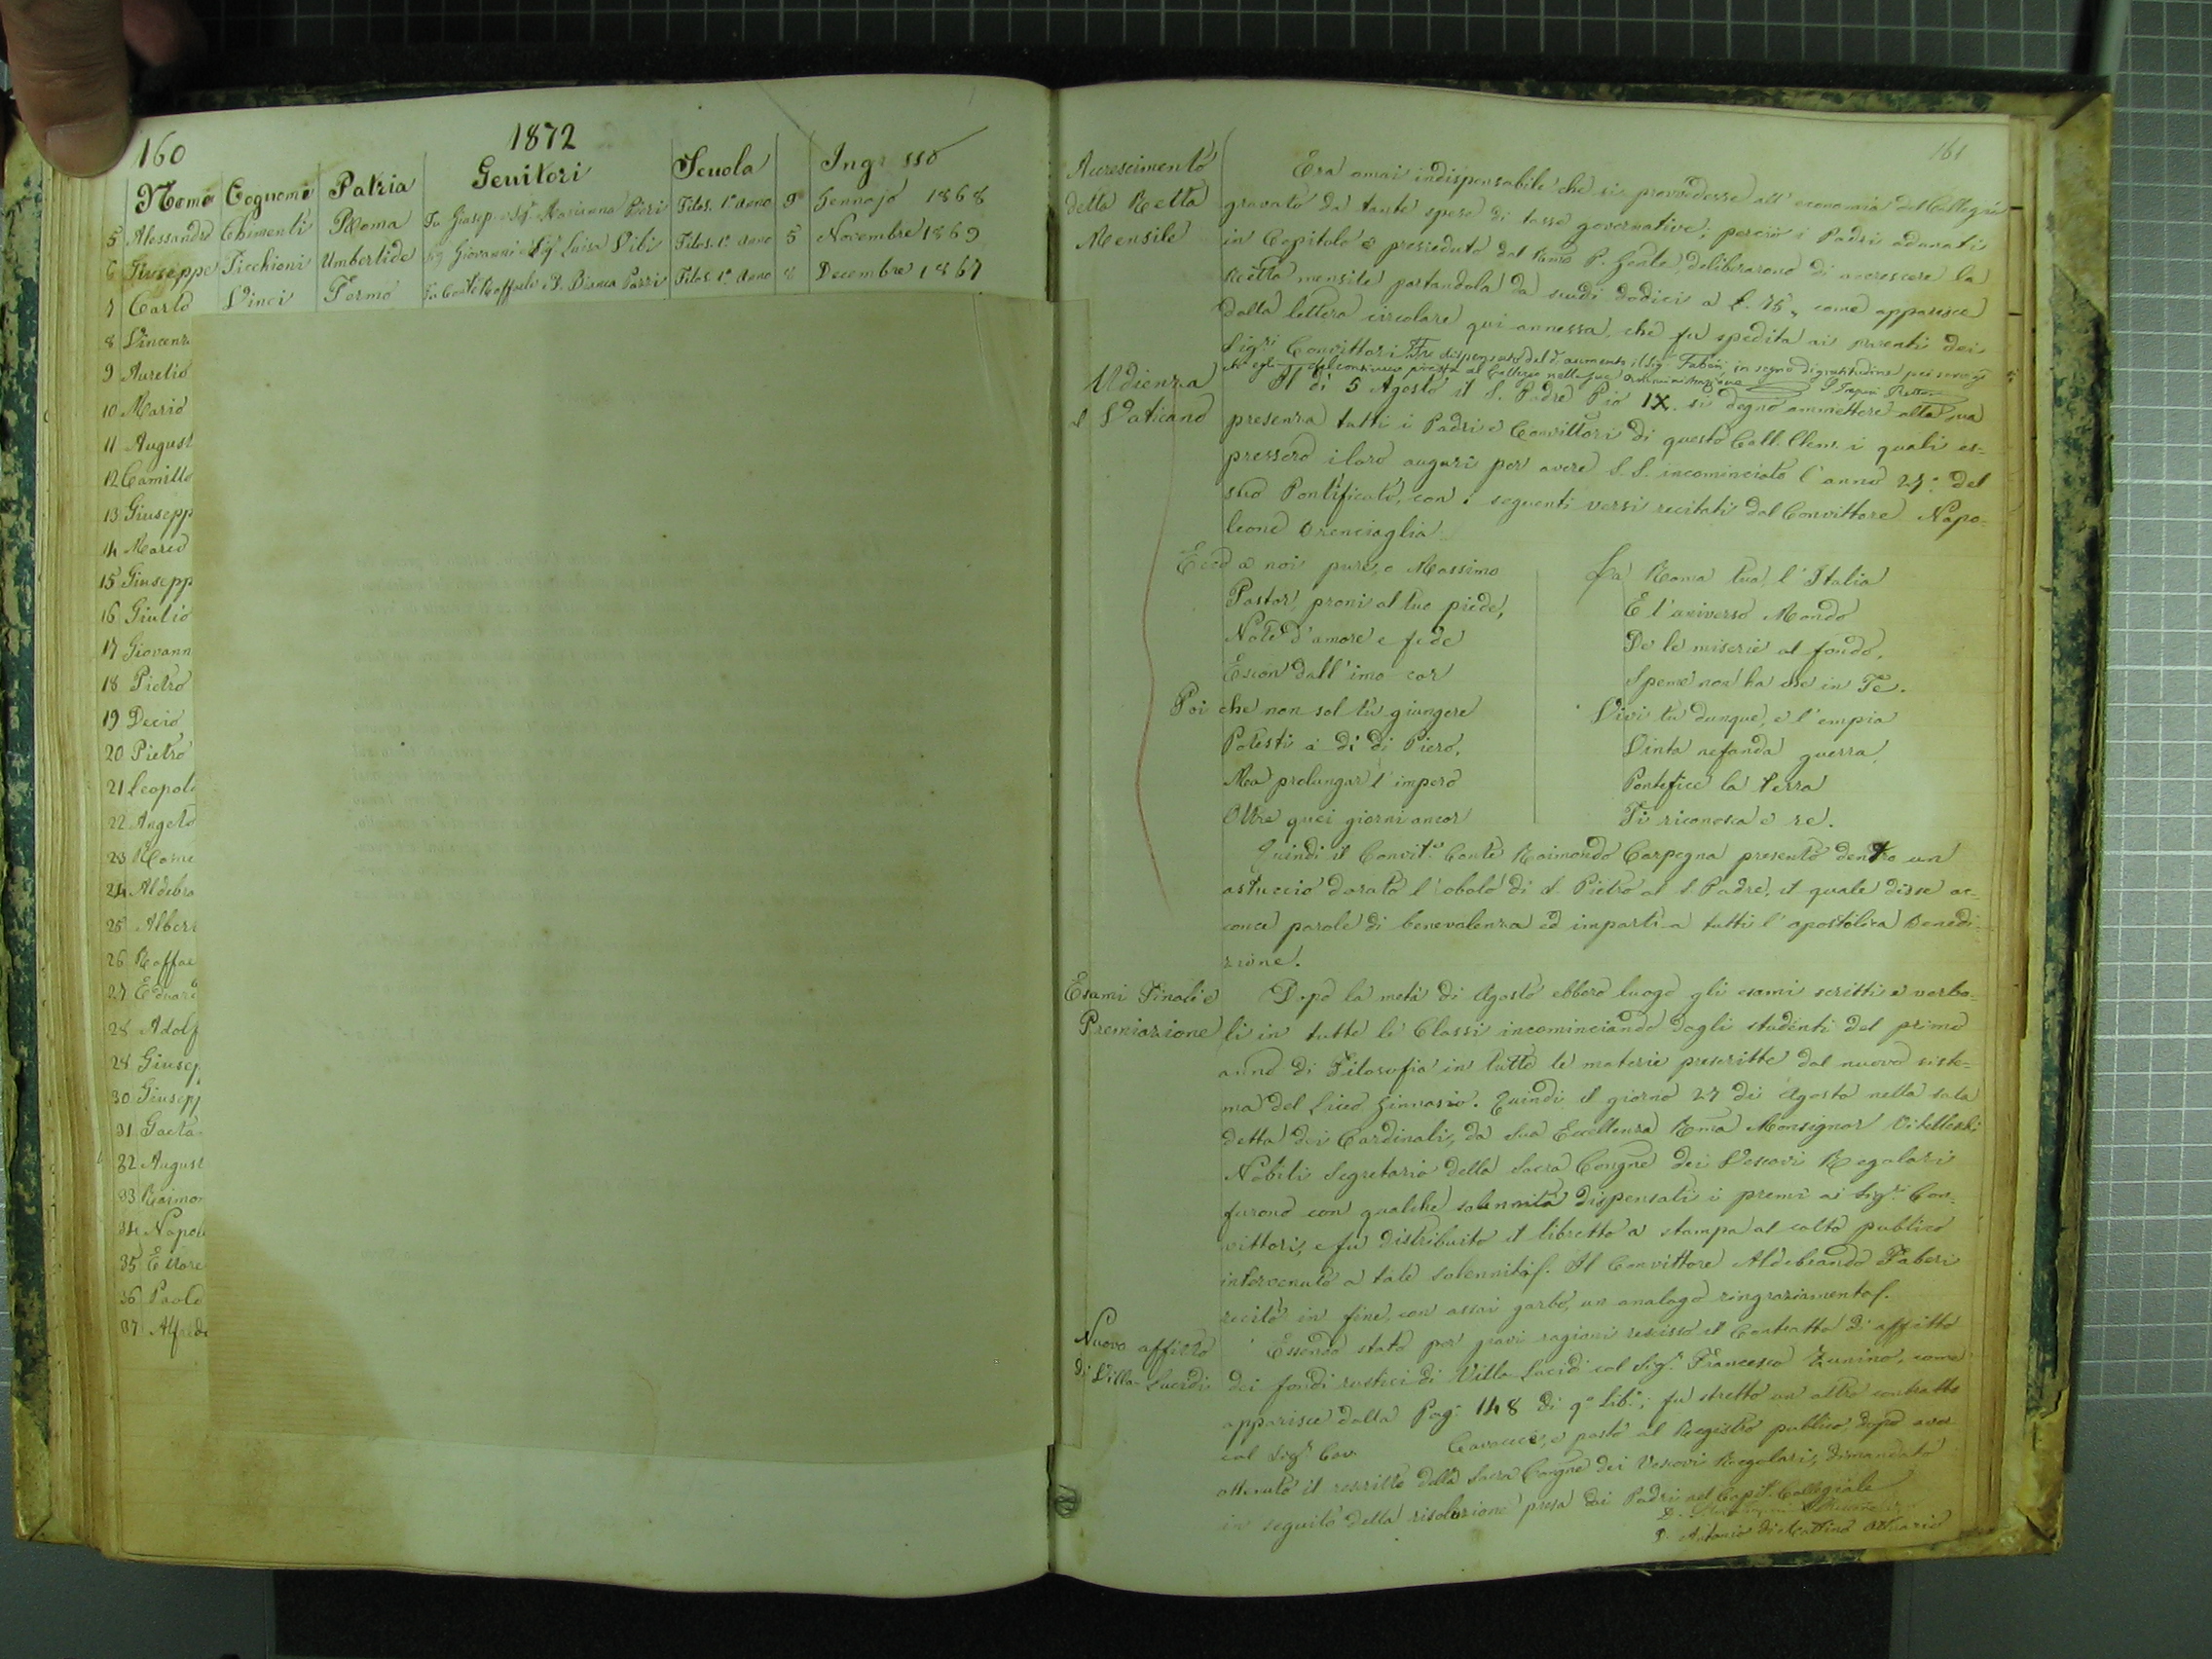 160
1872
Nome Cognome Patria Genitori Scuola Ingresso
5 Alessandro Chimenti Roma Fu Giusep. e Sigª Marianna Pieri Filos. 1º Anno 9 Gennajo 1868
6 Giuseppe Picchioni Umbertide Sig. Giovanni e Sigª Luisa Vibi Filos. 1º Anno 5 Novembre 1869
7 Carlo Vinci Fermo Fu Conte Raffaele e D. Bianca Pazzi Filos. 1º Anno 8 Decembre 1867
8 Vincenz
9 Aurelio
10 Mario
11 August
12 Camillo
13 Giusepp
14 Mario
15 Giusepp
16 Giulio
17 Giovann
18 Pietro
19 Decio
20 Pietro
21 Leopol
22 Angelo
23 Rome
24 Aldebra
25 Alber
26 Raffae
27 Eduard
28 Adolf
28 Giusep
30 Giusepp
31 Gaeta
32 August
33 Raimon
34 Napol
35 Ettore
36 Paolo
37 Alfred
161
Accrescimento
della Retta
Mensile
Era omai indispensabile che si provvedesse all' economia del Collegio
gravato da tante spese di tasse governative; perciò i Padri adunati
in Capitolo e presieduto dal Rmo P. Gnale, deliberarono di accrescere la
Retta mensile portandola da scudi dodici a £. 75, come apparisce
dalla lettera circolare qui annessa, che fu spedita ai parenti dei
Sigri Convittori. Fu dispensato dal dº aumento il Sigr Fabiii, in segno di gratitudine pei servigi
che egli del continuo presta al Collegio nella sua Amministrazione
Udienza
al Vaticano
Il dì 5 Agosto il S. Padre Pio IX. si degnò ammettere alla sua
presenza tutti i Padri e Convittori di questo Coll. Clem. i quali es-
pressero i loro auguri per avere S. S. incominciato l' anno 27º del
suo Pontificato, con i seguenti versi recitati dal Convittore Napo-
leone Brenciaglia.
Ecco a noi pure, o Massimo
Pastor, proni al tuo piede,
Note d' amore e fede
Escon dall' imo cor
Poi che non sol tu giungere
Potesti a dì di Piero,
Ma prolungar l' impero
Oltre quei giorni ancor
Fra Roma tua, l' Italia
E l' universo Mondo
De le miserie al fondo,
Speme non ha che in Te.
Vivi tu dunque, e l' empia
Vinta nefanda guerra,
Pontefice la terra
Ti riconosca e re.
Quindi il Convit.e Conte Raimondo Carpegna presentò dentro un
astuccio dorato l' obolo di S. Pietro al S. Padre, il quale disse ac-
conce parole di benevolenza ed impartì a tutti l' apostolica Benedi-
zione.
Esami Finali e
Premiazione
Dopo la metà di Agosto ebbero luogo gli esami scritti e verba-
li in tutte le Classi incominciando dagli studenti del primo
anno di Filosofia in tutte le materie prescritte dal nuovo siste-
ma del Liceo Ginnasio. Quindi il giorno 27 di Agosto nella sala
detta dei Cardinali, da Sua Eccellenza Rma Monsignor Vitelleschi
Nobili Segretario della Sacra Congne dei Vescovi Regolari
furono con qualche solennità dispensati i premi ai Sigri Con-
vittori, e fu distribuito il libretto a stampa al colto publico
intervenuto a tale solennità. Il Convittore Aldebrando Faberi
recitò in fine, con assai garbo, un analogo ringraziamento.
Nuovo affitto
di Villa-Lucidi
Essendo stato per gravi ragioni rescisso il Contratto di affitto
dei fondi rustici di Villa Lucidi col Sigr Francesco Zunino, come
apparisce dalla Pag. 148 di qº Lib.º; fu stretto un altro contratto
col Sigr Cav. Cavacci, e posto al Registro publico, dopo aver
ottenuto il rescritto della Sacra Congne dei Vescovi Regolari, dimandato
in seguito della risoluzione presa dai Padri nel Capit. Collegiale
D. Antonio di Mattino Attuario